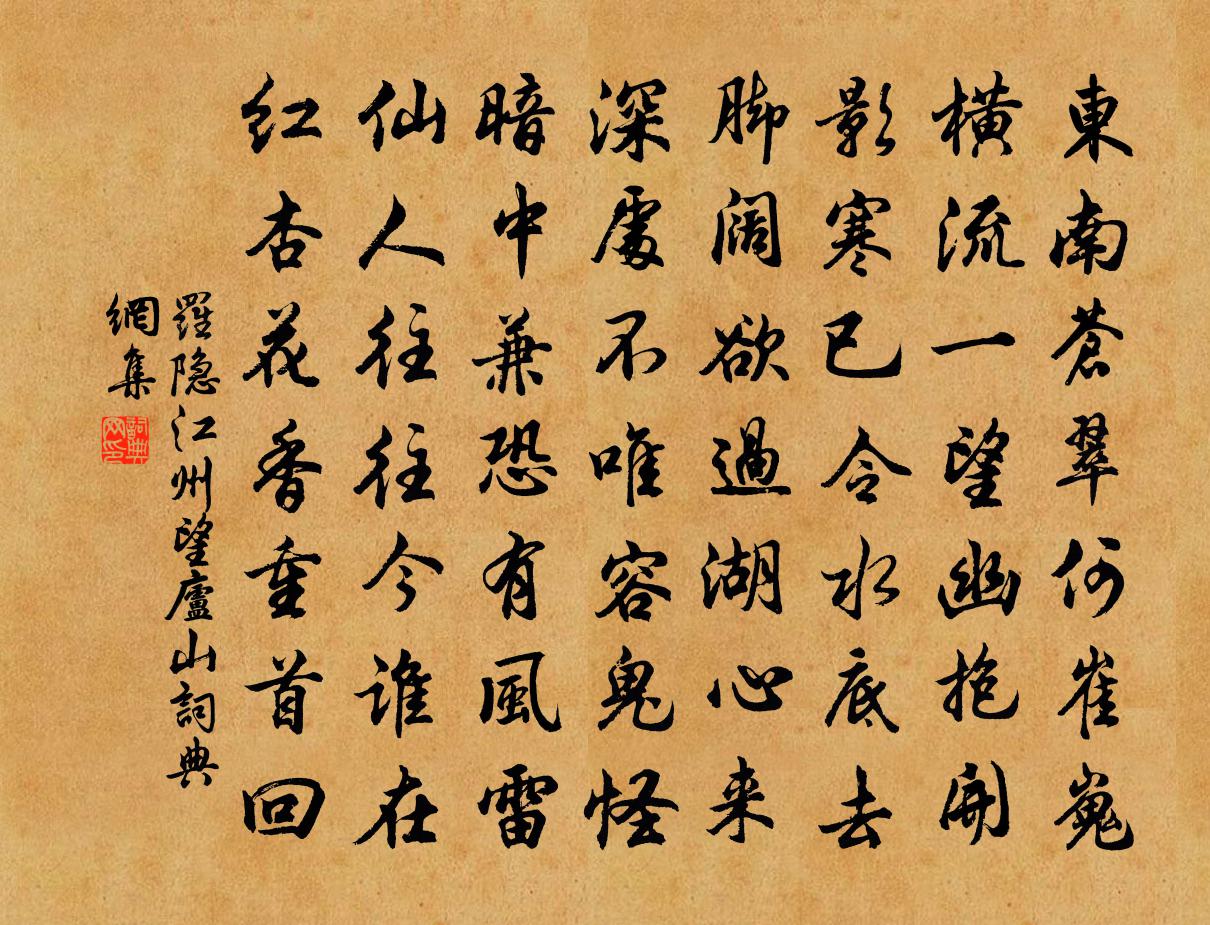 東南蒼翠何崔嵬
橫流一望幽抱開
影寒已令水底去
脚阔欲過湖心来
深處不唯容鬼怪
暗中兼恐有風雷
仙人往往今誰在
红杏花香重首回
羅隐江州望廬山詞典
網集
詞典
网印